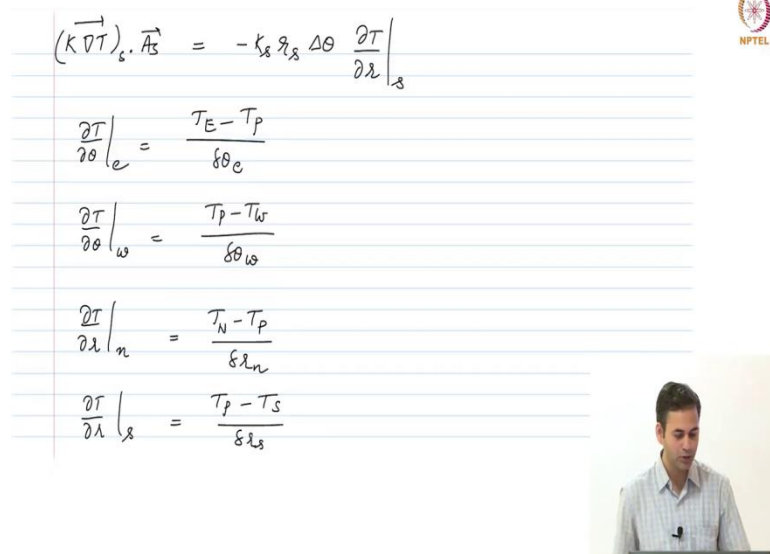 (K∇T)ₛ . Aₛ = - kₛ rₛ Δθ ∂T/∂r|ₛ
NPTEL
∂T/∂θ|ₑ = (T_E - T_P)/δθₑ
∂T/∂θ|_w = (T_P - T_W)/δθ_w
∂T/∂r|ₙ = (T_N - T_P)/δrₙ
∂T/∂r|ₛ = (T_P - T_S)/δrₛ